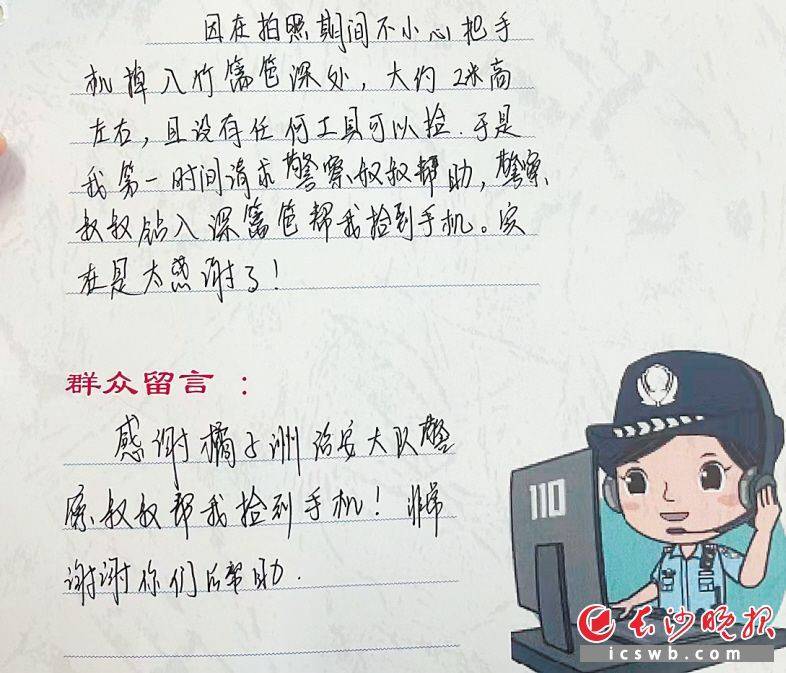 因在拍照期间不小心把手
机掉入竹篱笆深处，大约2米高
左右，且没有任何工具可以捡.于是
我第一时间请求警察叔叔帮助，警察
叔叔钻入深篱笆帮我捡到手机。实
在是太感谢了！
群众留言：
感谢橘子洲治安大队警
察叔叔帮我捡到手机！非常
谢谢你们的帮助.
110
长沙晚报
icswb.com